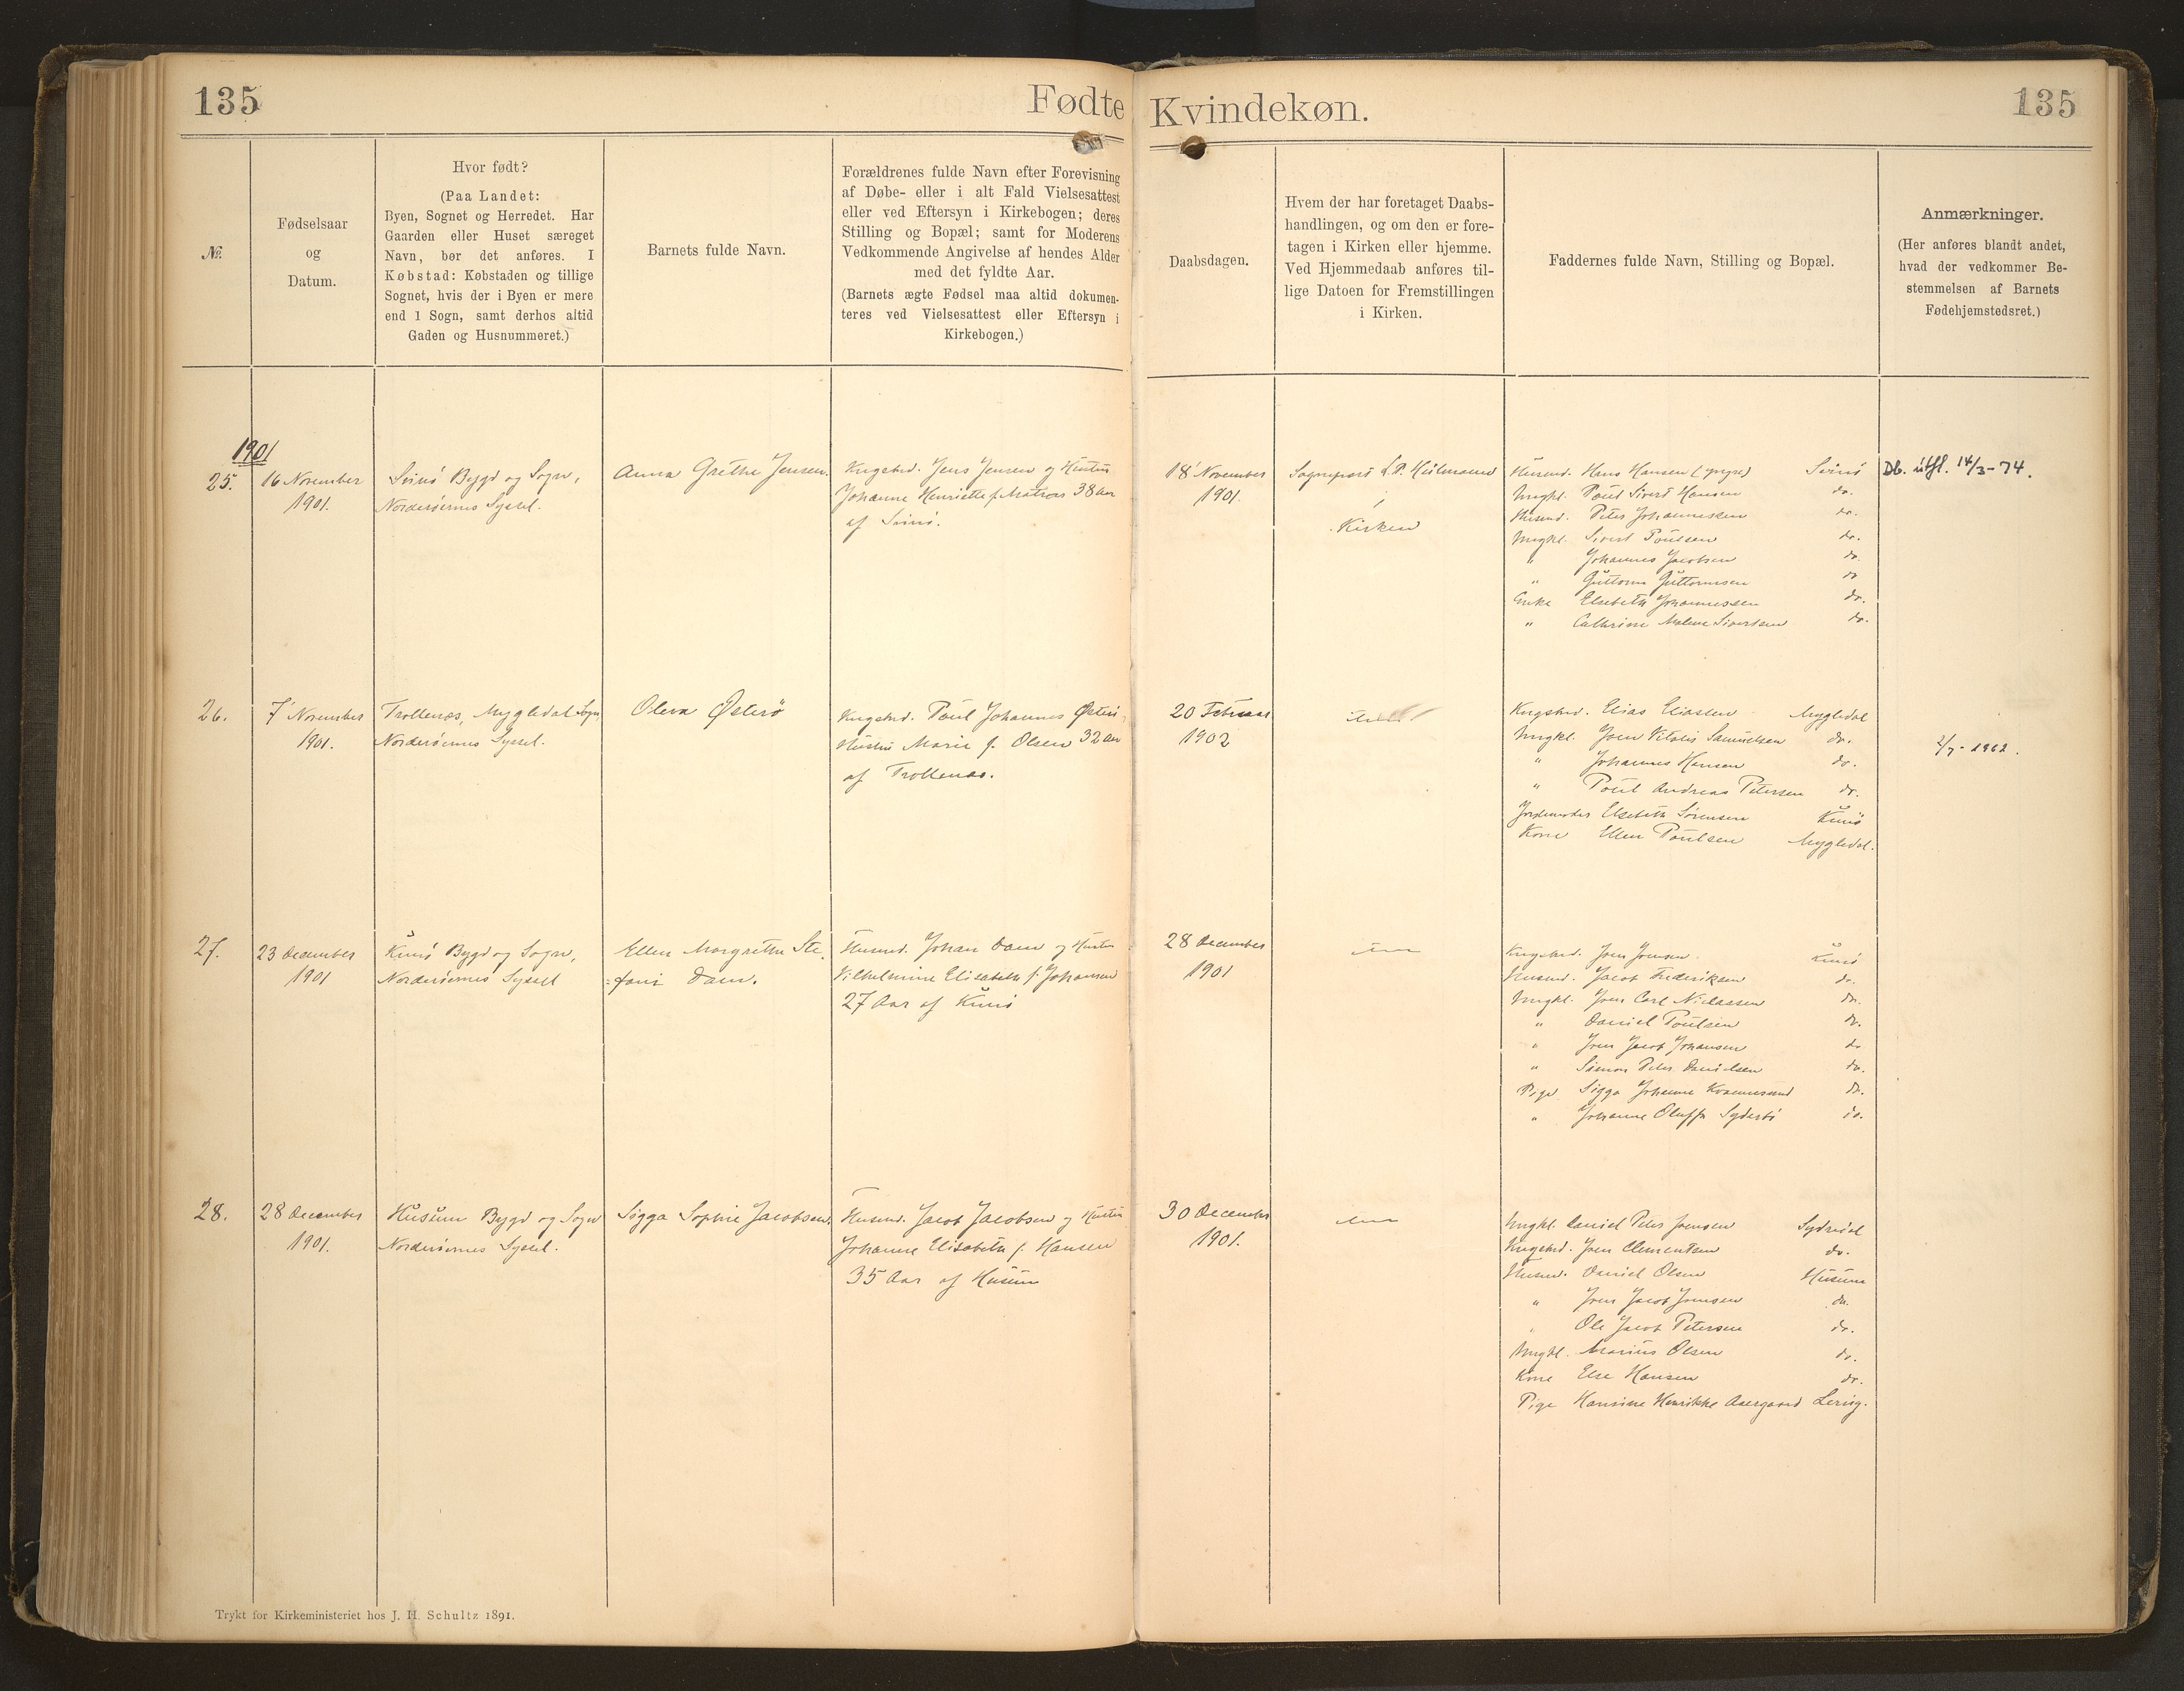 135
Fødte
Kvindekøn.
135
№
Fødselsaar
og
Datum.
Hvor født?
(Paa Landet:
Byen, Sognet og Herredet. Har
Gaarden eller Huset særeget
Navn, bør det anføres. I
Købstad: Købstaden og tillige
Sognet, hvis der i Byen er mere
end 1 Sogn, samt derhos altid
Gaden og Husnummeret.)
Barnets fulde Navn.
Forældrenes fulde Navn efter Forevisning
af Døbe- eller i alt Fald Vielsesattest
eller ved Eftersyn i Kirkebogen; deres
Stilling og Bopæl; samt for Moderens
Vedkommende Angivelse af hendes Alder
med det fyldte Aar.
(Barnets ægte Fødsel maa altid dokumen-
teres ved Vielsesattest eller Eftersyn i
Kirkebogen.)
Daabsdagen.
Hvem der har foretaget Daabs-
handlingen, og om den er fore-
tagen i Kirken eller hjemme.
Ved Hjemmedaab anføres til-
lige Datoen for Fremstillingen
i Kirken.
Faddernes fulde Navn, Stilling og Bopæl.
Anmærkninger.
(Her anføres blandt andet,
hvad der vedkommer Be-
stemmelsen af Barnets
Fødehjemstedsret.)
1901
25.
16 November
1901.
Svinö Bygd og Sogn,
Norderöernes Syssel.
Anna Grethe Jensen.
Kngsbd. Jens Jensen og Hustru
Johanne Henriette f. Matras 38 Aar
af Svinö.
18 November
1901.
Sognepræst
i
Kirken
Husmd. Hans Hansen (yngre) Svinö
Ungkl. Poul Sivert Hansen do.
Husmd. Peter Johannessen do.
Ungkl. Sivert Poulsen do.
" Johannes Jacobsen do.
" Guttorm Guttormsen do
Enke Elsebeth Johannessen do.
" Cathrine Malene Sivertsen do.
Db. útfl. 14/3-74.
26.
7 November
1901.
Trollenæs, Mygledal Sogn
Norderöernes Syssel.
Oleva Østerö
Kngsbd. Poul Johannes Østerö,
Hustru Marie f. Olsen 32 Aar
af Trollenæs.
20 Februar
1902
Kngsbd. Elias Eliassen Mygledal
Ungkl. Joen Vitalis Samuelsen do.
" Johannes Hansen do.
" Poul Andreas Petersen do.
Jordemoder Elsebeth Sörensen Kunö
Kone Ellen Poulsen Mygledal.
2/7-1962.
27.
23 December
1901
Kunö Bygd og Sogn,
Norderöernes Syssel
Ellen Margrethe Ste
=fani Dam.
Husmd. Johan Dam og Hustru
Vilhelmine Elisabeth f. Johansen
27 Aar af Kunö
28 December
1901
Kngsbd. Joen Joensen Kunö
Husmd. Jacob Frederiksen do.
Ungkl. Joen Carl Niclassen do.
" Daniel Poulsen do.
" Joen Jacob Johansen do
" Simon Peter Danielsen do.
Pige Sigga Johanne Kvannesund do.
" Johanne Oluffa Syderbö do.
28.
28 December
1901.
Husum Bygd og Sogn
Norderöernes Syssel.
Sigga Sophie Jacobsen.
Husmd. Jacob Jacobsen og Hustru
Johanne Elisabeth f. Hansen
35 Aar af Husum
30 December
1901.
Ungkl. Daniel Peter Joensen Sydredal
Kngsbd. Joen Clementsen do.
Husmd. Daniel Olsen Husum
" Joen Jacob Joensen do.
" Ole Jacob Petersen do.
Ungkl. Marius Olsen do.
Kone Else Hansen do.
Pige Hansine Henrikke Aaergaard
Trykt for Kirkeministeriet hos J. H. Schultz 1891.